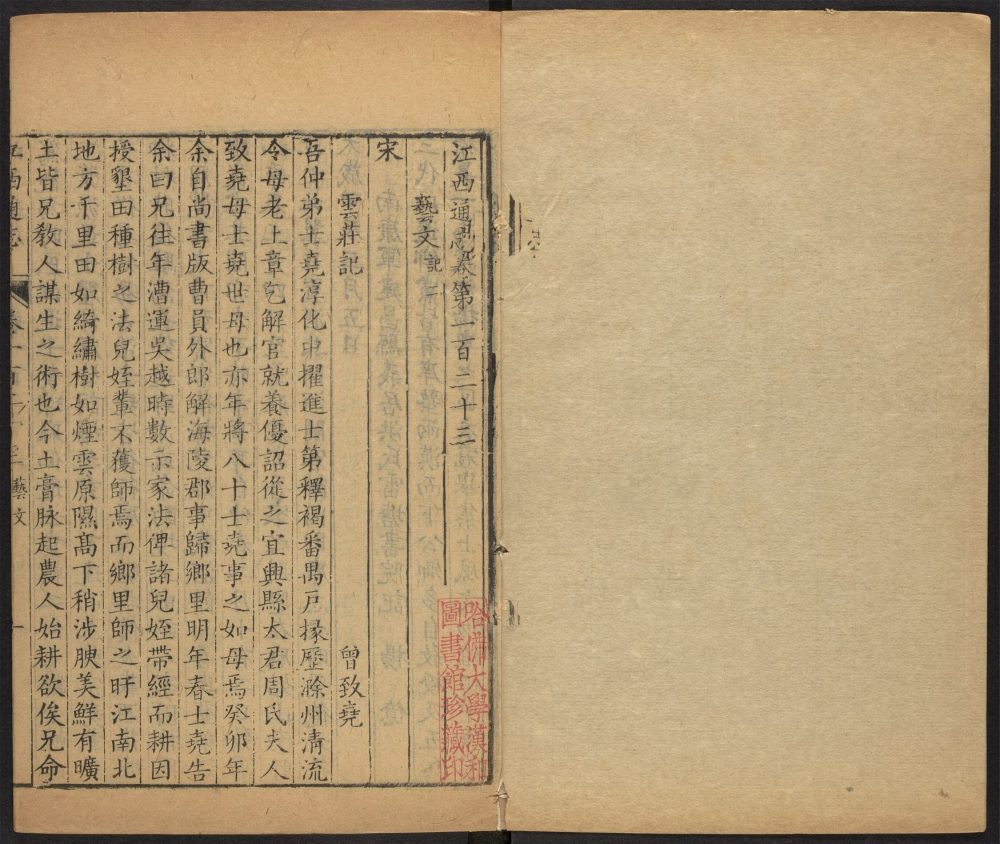 江西通志卷第一百二十三
藝文 記二
宋
雲莊記 曾致堯
吾仲弟士堯淳化中擢進士第釋褐番禺戶掾歷滁州清流
令母老上章乞解官就養優詔從之宜興縣太君周氏夫人
致堯母士堯世母也亦年將八十士堯事之如母焉癸卯年
余自尚書版曹員外郎解海陵郡事歸鄉里明年春士堯告
余曰兄往年漕運吳越時數示家法俾諸兒姪帶經而耕因
授墾田種樹之法兒姪輩不獲師焉而鄉里師之旴江南北
地方千里田如綺繡樹如煙雲原隰髙下稍涉腴美鮮有曠
土皆兄教人謀生之術也今土膏脉起農人始耕欲俟兄命
江西通志 卷一百二十三 藝文 一
哈佛大學漢和
圖書館珍藏印